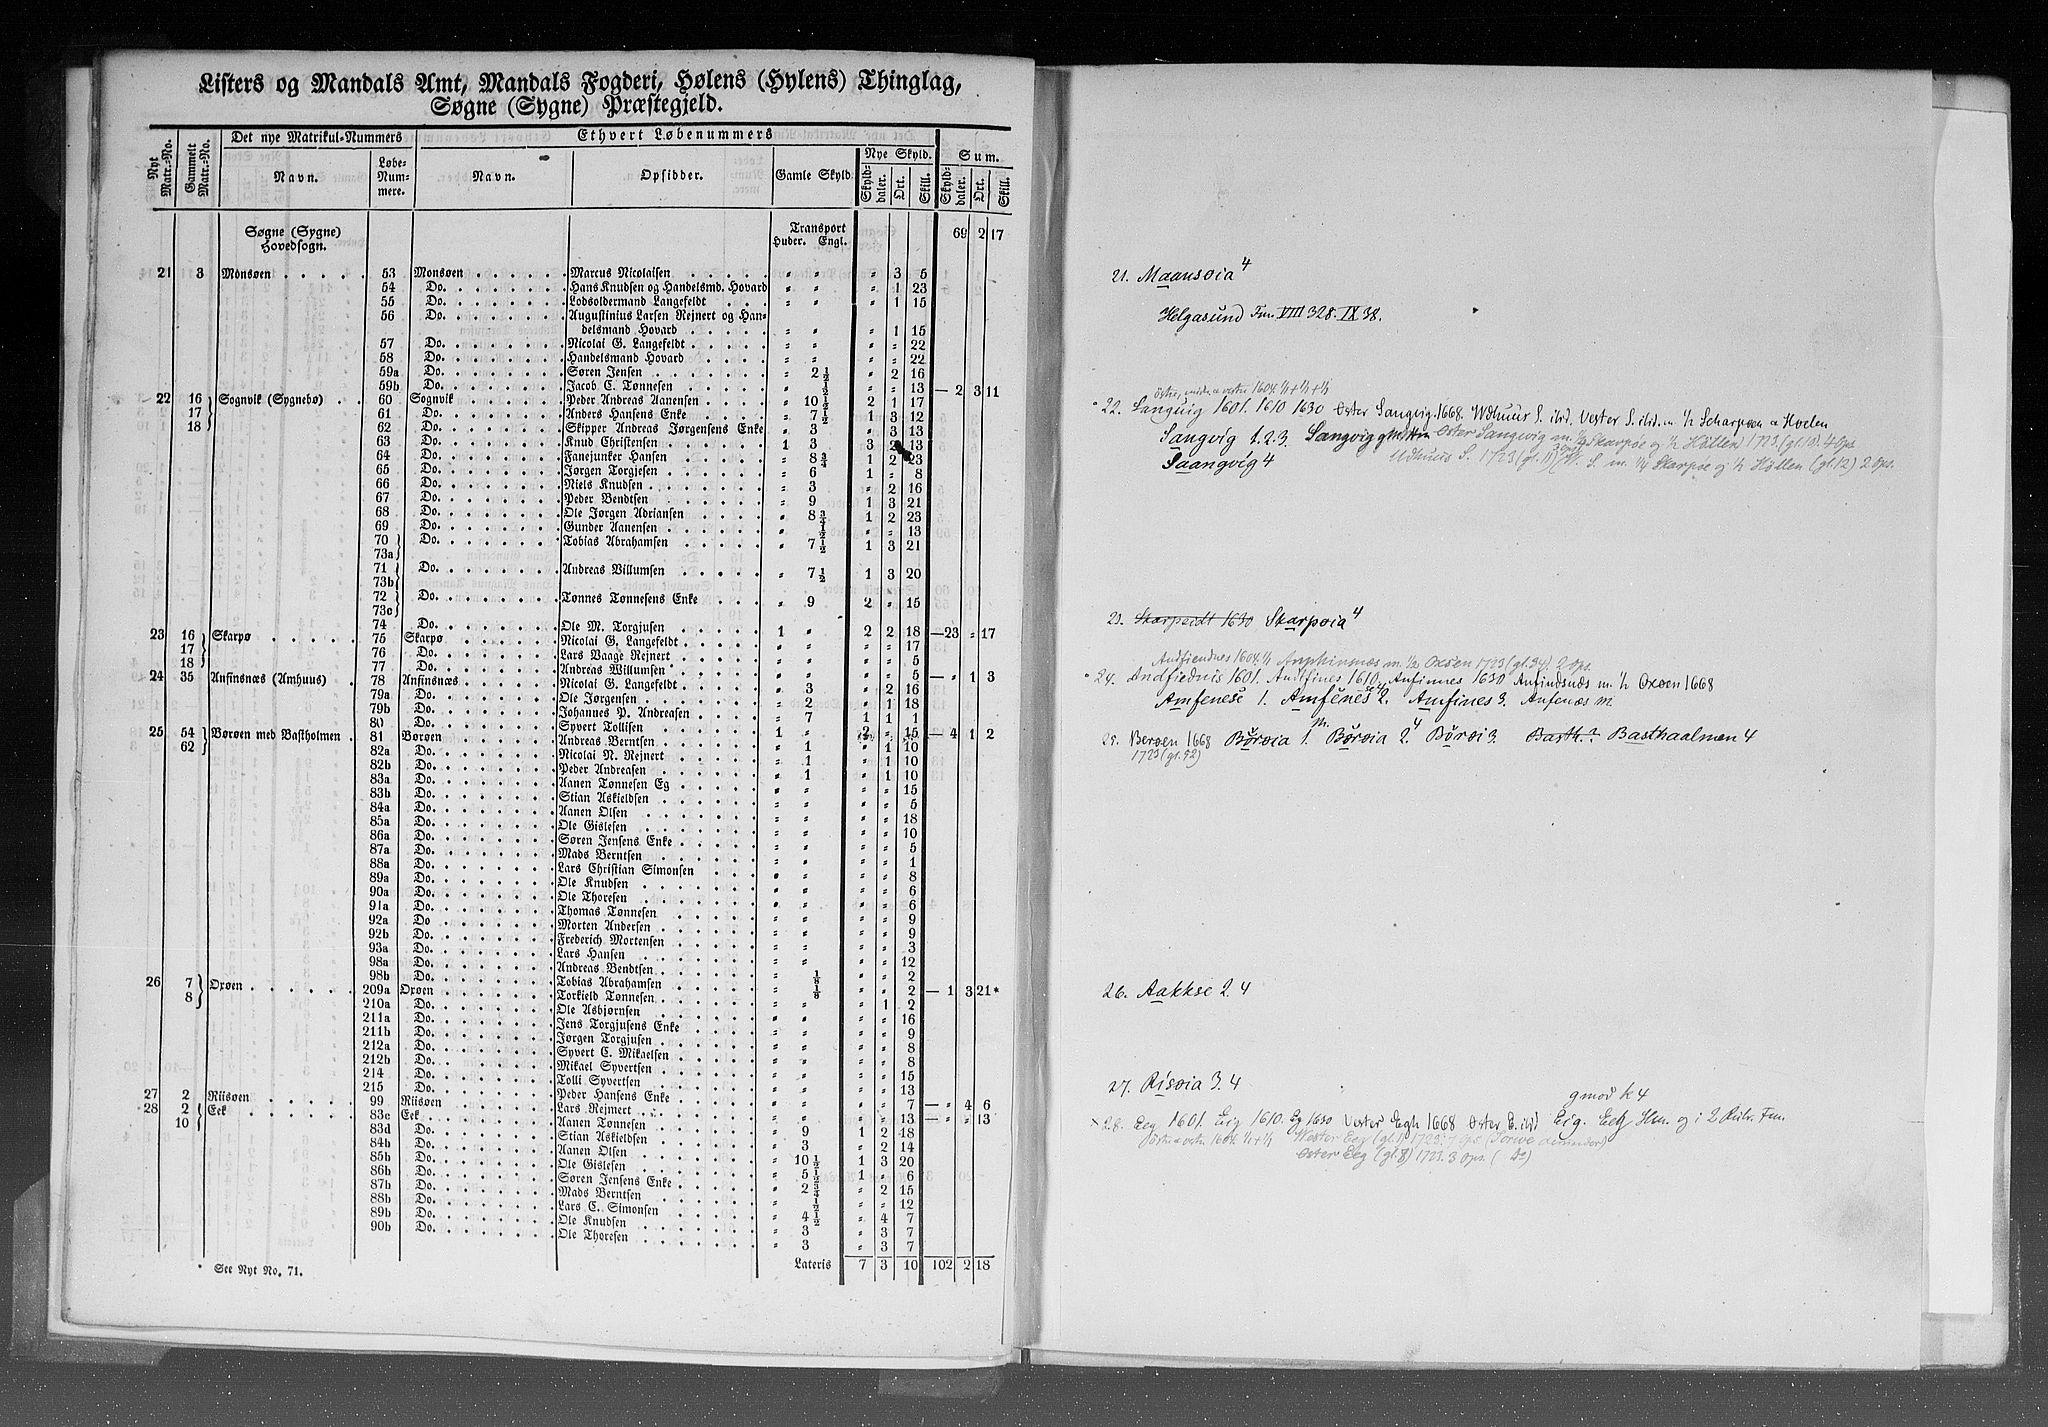 Listers og Mandals Amt, Mandals Fogderi, Hølens (Hylens) Thinglag,
Søgne (Sygne) Præstegjeld.
Nyt Matr.-No. Gammelt Matr.-No. Det nye Matrikul-Nummers Ethvert Løbenummers
Navn. Løbe-Num-mere. Navn. Opsidder. Gamle Skyld. Nye Skyld. Sum.
Skyld-daler. Ort. Skill. Skyld-daler. Ort. Skill.
Søgne (Sygne) Hovedsogn. Transport Huder. Engl. 69 2 17
21 3 Monsøen 53 Monsøen Marcus Nicolaisen " " " 3 5
54 Do. Hans Knudsen og Handelsmd. Hovard " " " 1 23
55 Do. Lodsoldermand Langefeldt " " " 1 15
56 Do. Augustinius Larsen Rejnert og Han-
delsmand Hovard " " " 1 15
57 Do. Nicolai G. Langefeldt " " " " 22
58 Do. Handelsmand Hovard " " " " 22
59a Do. Søren Jensen " 2 1/2 " 2 16
59b Do. Jacob C. Tønnesen " 1/2 " " 13 — 2 3 11
22 16 Sognvik (Sygnebø) 60 Sognvik Peder Andreas Aanensen " 10 1/2 2 1 17
17 61 Do. Anders Hansens Enke " 7 1/2 1 3 12
18 62 Do. Skipper Andreas Jørgensens Enke " 3 " 3 13
63 Do. Knud Christensen 1 3 3 2 13
64 Do. Fanejunker Hansen " 8 3/4 1 2 23
65 Do. Jørgen Torgjesen " 6 1 " 8
66 Do. Niels Knudsen " 3 " 2 16
67 Do. Peder Bendtsen " 9 1 3 21
68 Do. Ole Jørgen Adriansen " 8 3/4 1 2 23
69 Do. Gunder Aanensen " 1/2 " " 13
70 Do. Tobias Abrahamsen " 7 1/2 1 3 21
73a
71 Do. Andreas Villumsen " 7 1/2 1 3 20
73b
72 Do. Tønnes Tønnesens Enke " 9 2 " 15
73c
74 Do. Ole M. Torgjusen 1 " 2 2 18 — 23 " 17
23 16 Skarpø 75 Skarpø Nicolai G. Langefeldt " " " " 17
17 76 Do. Lars Vaage Rejnert " " " " 5
18 77 Do. Andreas Willumsen " " " " 5 — " 1 3
24 35 Anfinsnæs (Amhuus) 78 Anfinsnæs Nicolai G. Langefeldt " 3 " 2 16
79a Do. Ole Jørgensen " 2 " 1 18
79b Do. Johannes P. Andreasen " 7 1 1 1
80 Do. Syvert Tollisen 1 " 2 " 15 — 4 1 2
25 54 Borøen med Bastholmen 81 Borøen Andreas Berntsen " 1 " 1 10
62 82a Do. Nicolai N. Rejnert " 1 " 1 10
82b Do. Peder Andreasen " 1 " 1 10
83a Do. Aanen Tønnesen Eg " " " " 15
83b Do. Stian Askieldsen " " " " 5
84a Do. Aanen Olsen " " " " 18
85a Do. Ole Gislesen " " " " 10
86a Do. Søren Jensens Enke " " " " 5
87a Do. Mads Berntsen " " " " 1
88a Do. Lars Christian Simonsen " " " " 8
89a Do. Ole Knudsen " " " " 6
90a Do. Ole Thoresen " " " " 6
91a Do. Thomas Tønnesen " " " " 9
92a Do. Morten Andersen " " " " 9
92b Do. Frederich Mortensen " " " " 3
93a Do. Lars Hansen " " " " 12
98a Do. Andreas Bendtsen " 1/8 " " 2
98b Do. Tobias Abrahamsen " 1/8 " " 2 — 1 3 21*
26 7 Oxøen 209a Oxøen Torkield Tønnesen " " " 1 2
8 210a Do. Ole Asbjørnsen " " " " 16
211a Do. Jens Torgjusens Enke " " " " 9
211b Do. Jørgen Torgjusen " " " " 8
212a Do. Syvert C. Mikaelsen " " " " 8
212b Do. Mikael Syvertsen " " " " 15
214 Do. Tolli Syvertsen " " " " 13
215 Do. Peder Hansens Enke " " " " 7 — " 4 6
27 2 Riisøen 99 Riisøen Lars Rejmert " " " " 13 — " " 13
28 2 Eek 83c Eek Aanen Tønnesen " 9 1 2 18
10 83d Do. Stian Askieldsen " 3 " 2 14
84b Do. Aanen Olsen " 10 1/2 1 3 20
85b Do. Ole Gislesen " 5 1/2 1 " 6
86b Do. Søren Jensens Enke " 2 3/4 " 2 15
87b Do. Mads Berntsen " 1/2 " " 12
88b Do. Lars C. Simonsen " 4 1/2 " 4 7
89b Do. Ole Knudsen " 3 " 3 7
90b Do. Ole Thoresen " 3 " 3 7
* See Nyt No. 71. Lateris 7 3 10 102 2 18
21. Maansøia 4
Helgasund Fm. VIII 328. IX 38.
østre, midtre o vestre 1604 1/1 + 1/1 + 1/1
22. Sanguig 1601. 1610 1630 Oster Sangvig. 1668. Wdhuus S. ibid. Vester S. ibid. m. 1/2 Scharpøen o Hoelen
Sangvig 1.2.3. Sangvig Oster Sangvig m. 1/2 Skarpøe og 1/2 Hållen 1723. (gl. 10). 4 Ops.
Saangvig 4 Udhuus S. 1723 (gl. 11) S. m. 1/4 Skarpøe og 1/2 Hållen (gl. 12) 2 Ops.
23. Skarpøedt 1630 Skarpøia 4
Andfiendnes 1604. 1/1 Anphinnæs m. 1/2 Oxöen 1723 (gl. 34). 2 Ops.
24. Andfiednis 1601. Andfines 1610. Anfinnes 1630 Anfindsnæs m. 1/2 Oxøen 1668
Amfenese 1. Amfenes 2. Amfines 3. Anfenæs m.
25. Berøen 1668 Børøia 1. Børøia 2. 4 Børøi 3. Basth.? Basthaalmen 4
1723 (gl. 52)
26. Aakkse 2. 4
27. Risøia 3. 4
gmod k 4
× 28. Eeg 1601. Eig 1610. Eg 1630 Vester Eegh 1668 Øster E. ibid Eig. Eek Hm. og i 2 Fm.
Østre o vestre 1604. 1/1 + 1/1 Wester Eeg (gl. ) 1723.
Oster Eeg (gl. 8) 1723. 3 Ops. ( do)